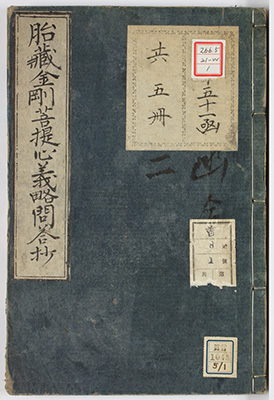 胎藏金剛菩提心義略問荅抄
五十一函
共五冊
2665
21-W
1
二
1065
5/1